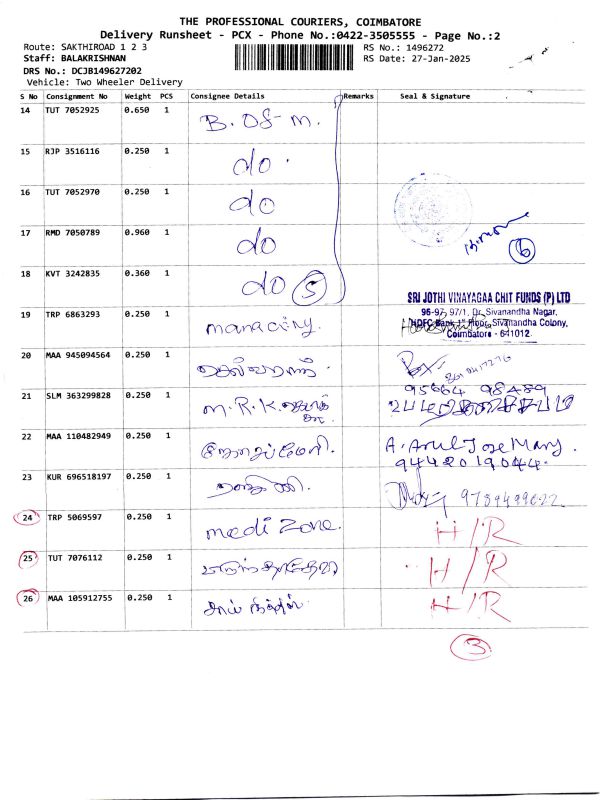 THE PROFESSIONAL COURIERS, COIMBATORE
Delivery Runsheet - PCX - Phone No.:0422-3505555 - Page No.:2
Route: SAKTHIROAD 1 2 3
RS No.: 1496272
Staff: BALAKRISHNAN
RS Date: 27-Jan-2025
DRS No.: DCJB149627202
Vehicle: Two Wheeler Delivery
S No Consignment No Weight PCS Consignee Details Remarks Seal & Signature
14 TUT 7052925 0.650 1 B.OS-M.
15 RJP 3516116 0.250 1 do
16 TUT 7052970 0.250 1 do
17 RMD 7050789 0.960 1 do
6
18 KVT 3242835 0.360 1 do 5
SRI JOTHI VINAYAGAA CHIT FUNDS (P) LTD
96-97, 97/1, Dr. Sivanandha Nagar,
HDFC Bank 1st Floor, Sivanandha Colony,
Coimbatore - 641012
19 TRP 6863293 0.250 1
20 MAA 945094564 0.250 1
21 SLM 363299828 0.250 1 M.R.K.
95664 98489
22 MAA 110482949 0.250 1 A. Arul Jose Mary.
9442019044.
23 KUR 696518197 0.250 1
24 TRP 5069597 0.250 1 medi zone. H/R
25 TUT 7076112 0.250 1 H/R
26 MAA 105912755 0.250 1 H/R
3